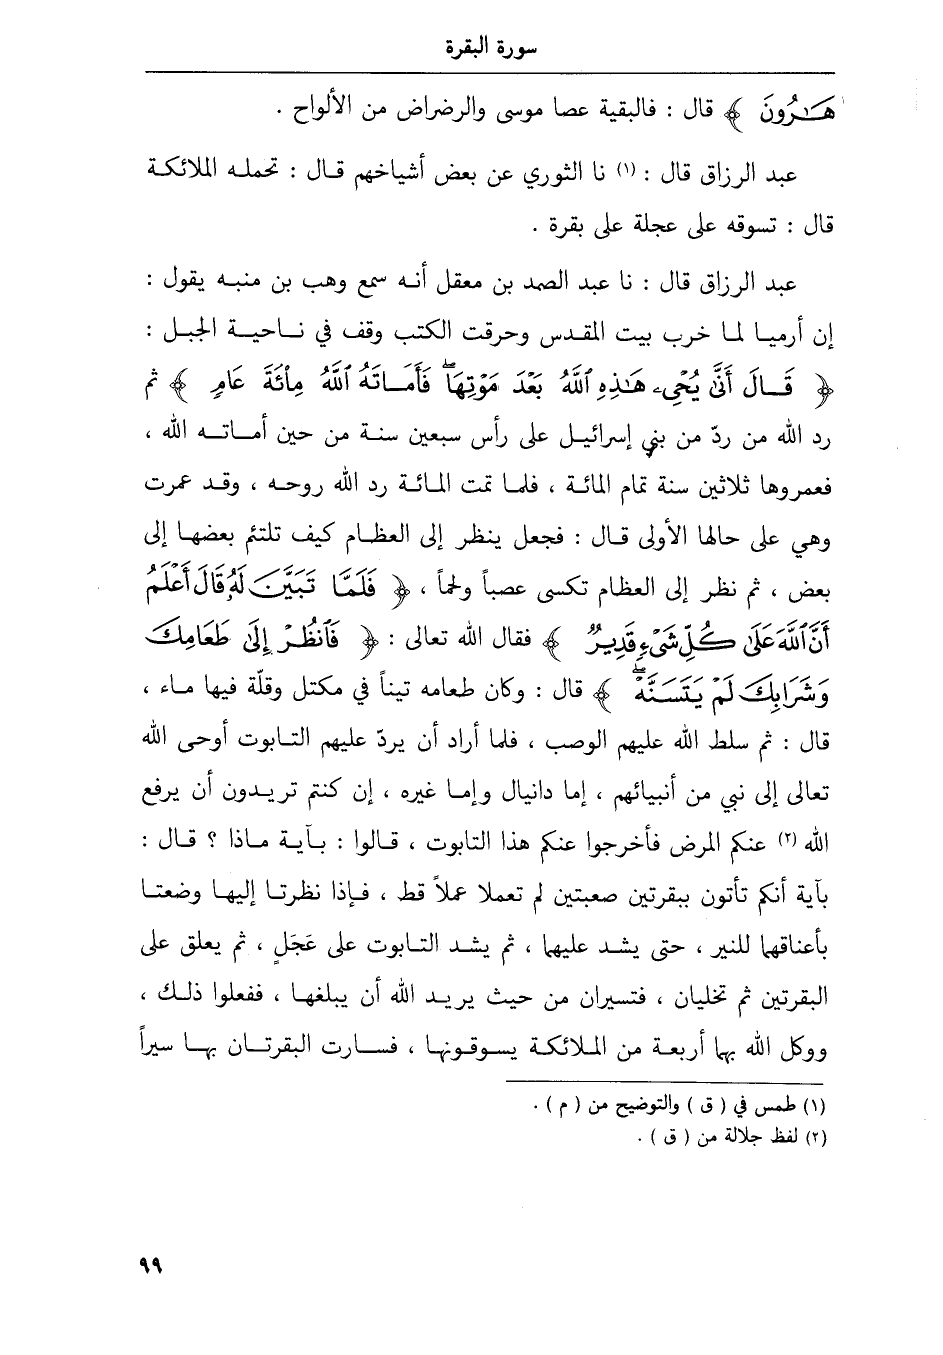 سورة البقرة
هَـٰرُونَ ﴾ قال : فالبقية عصا موسى والرضراض من الألواح .
عبد الرزاق قال : (١) نا الثوري عن بعض أشياخهم قال : تحمله الملائكة
قال : تسوقه على عجلة على بقرة .
عبد الرزاق قال : نا عبد الصمد بن معقل أنه سمع وهب بن منبه يقول :
إن أرميا لما خرب بيت المقدس وحرقت الكتب وقف في ناحية الجبل :
﴿ قَالَ أَنَّىٰ يُحْيِۦ هَـٰذِهِ ٱللَّهُ بَعْدَ مَوْتِهَا ۖ فَأَمَاتَهُ ٱللَّهُ مِا۟ئَةَ عَامٍ ﴾ ثم
رد الله من ردّ من بني إسرائيل على رأس سبعين سنة من حين أماته الله ،
فعمروها ثلاثين سنة تمام المائة ، فلما تمت المائة رد الله روحه ، وقد عمرت
وهي على حالها الأولى قال : فجعل ينظر إلى العظام كيف تلتئم بعضها إلى
بعض ، ثم نظر إلى العظام تكسى عصباً ولحماً ، ﴿ فَلَمَّا تَبَيَّنَ لَهُۥ قَالَ أَعْلَمُ
أَنَّ ٱللَّهَ عَلَىٰ كُلِّ شَىْءٍ قَدِيرٌ ﴾ فقال الله تعالى : ﴿ فَٱنظُرْ إِلَىٰ طَعَامِكَ
وَشَرَابِكَ لَمْ يَتَسَنَّهْ ۖ ﴾ قال : وكان طعامه تيناً في مكتل وقلّة فيها ماء ،
قال : ثم سلط الله عليهم الوصب ، فلما أراد أن يردّ عليهم التابوت أوحى الله
تعالى إلى نبي من أنبيائهم ، إما دانيال وإما غيره ، إن كنتم تريدون أن يرفع
الله (٢) عنكم المرض فأخرجوا عنكم هذا التابوت ، قالوا : بآية ماذا ؟ قال :
بآية أنكم تأتون ببقرتين صعبتين لم تعملا عملاً قط ، فإذا نظرتا إليها وضعتا
بأعناقها للنير ، حتى يشد عليها ، ثم يشد التابوت على عَجَلٍ ، ثم يعلق على
البقرتين ثم تخليان ، فتسيران من حيث يريد الله أن يبلغها ، ففعلوا ذلك ،
ووكل الله بها أربعة من الملائكة يسوقونها ، فسارت البقرتان بها سيراً
(١) طمس في ( ق ) والتوضيح من ( م ) .
(٢) لفظ جلالة من ( ق ) .
٩٩